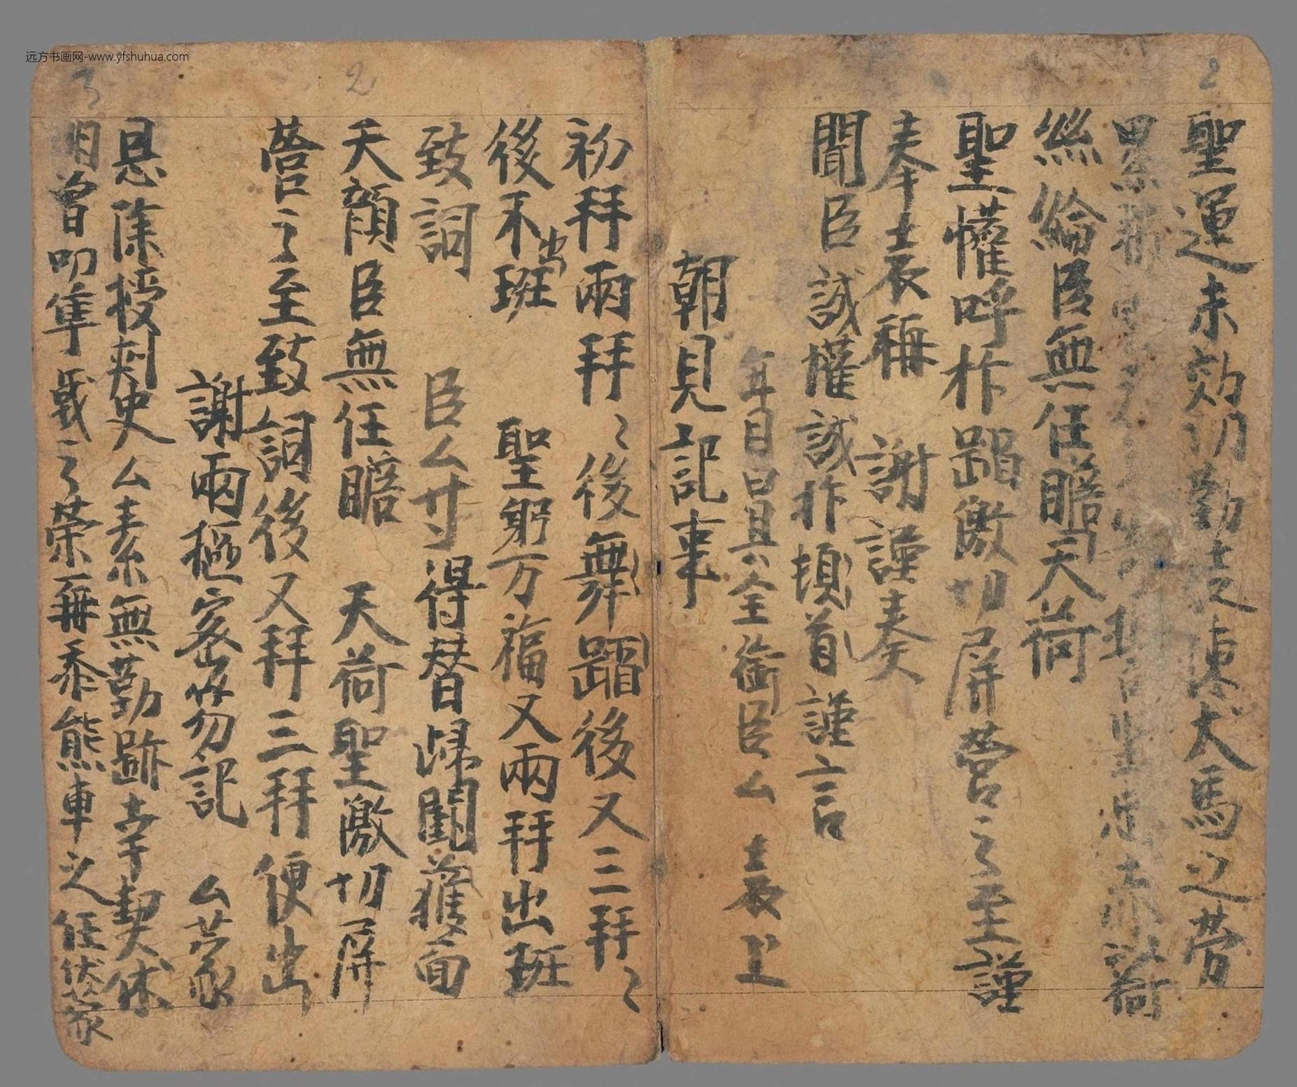 远方书画网-www.yfshuhua.com
2
聖運未効切勤 犬馬之勞
累 荷
絲綸臣無任瞻天荷
聖懽呼抃蹈激切屏營之至謹
奉表稱 謝謹奏
聞臣誠懽誠抃頓首謹言
年月日具全銜臣厶 表上
朝見記事
2
初拜兩拜〻後舞蹈後又三拜〻
後不出班 聖躬万福又兩拜出班
致詞 臣厶寸得替歸闕獲面
天顔臣無任瞻 天荷聖激切屏
營之至致詞後又拜三拜便出
謝兩樞密笏記 厶蒙
恩除授刺史厶素無勤跡幸契休
3
明曾叨隼 之榮再忝熊車之任